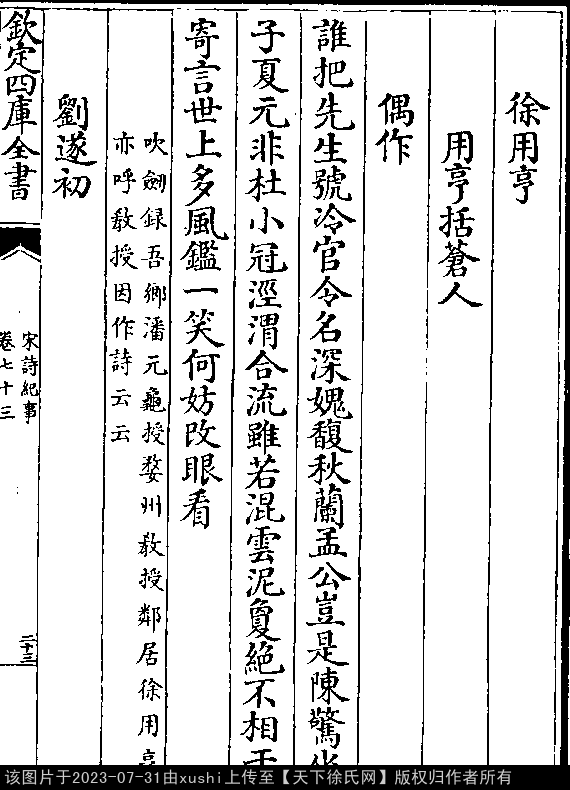 徐用亨
用亨括蒼人
偶作
誰把先生號冷官令名深媿馥秋蘭孟公豈是陳驚坐
子夏元非杜小冠涇渭合流雖若混雲泥敻絕不相干
寄言世上多風鑑一笑何妨改眼看
吹劍録吾鄉潘元龜授婺州敎授鄰居徐用亨
亦呼敎授因作詩云云
劉遂初
欽定四庫全書
宋詩紀事
卷七十三
二十三
该图片于2023-07-31由xushi上传至【天下徐氏网】版权归作者所有